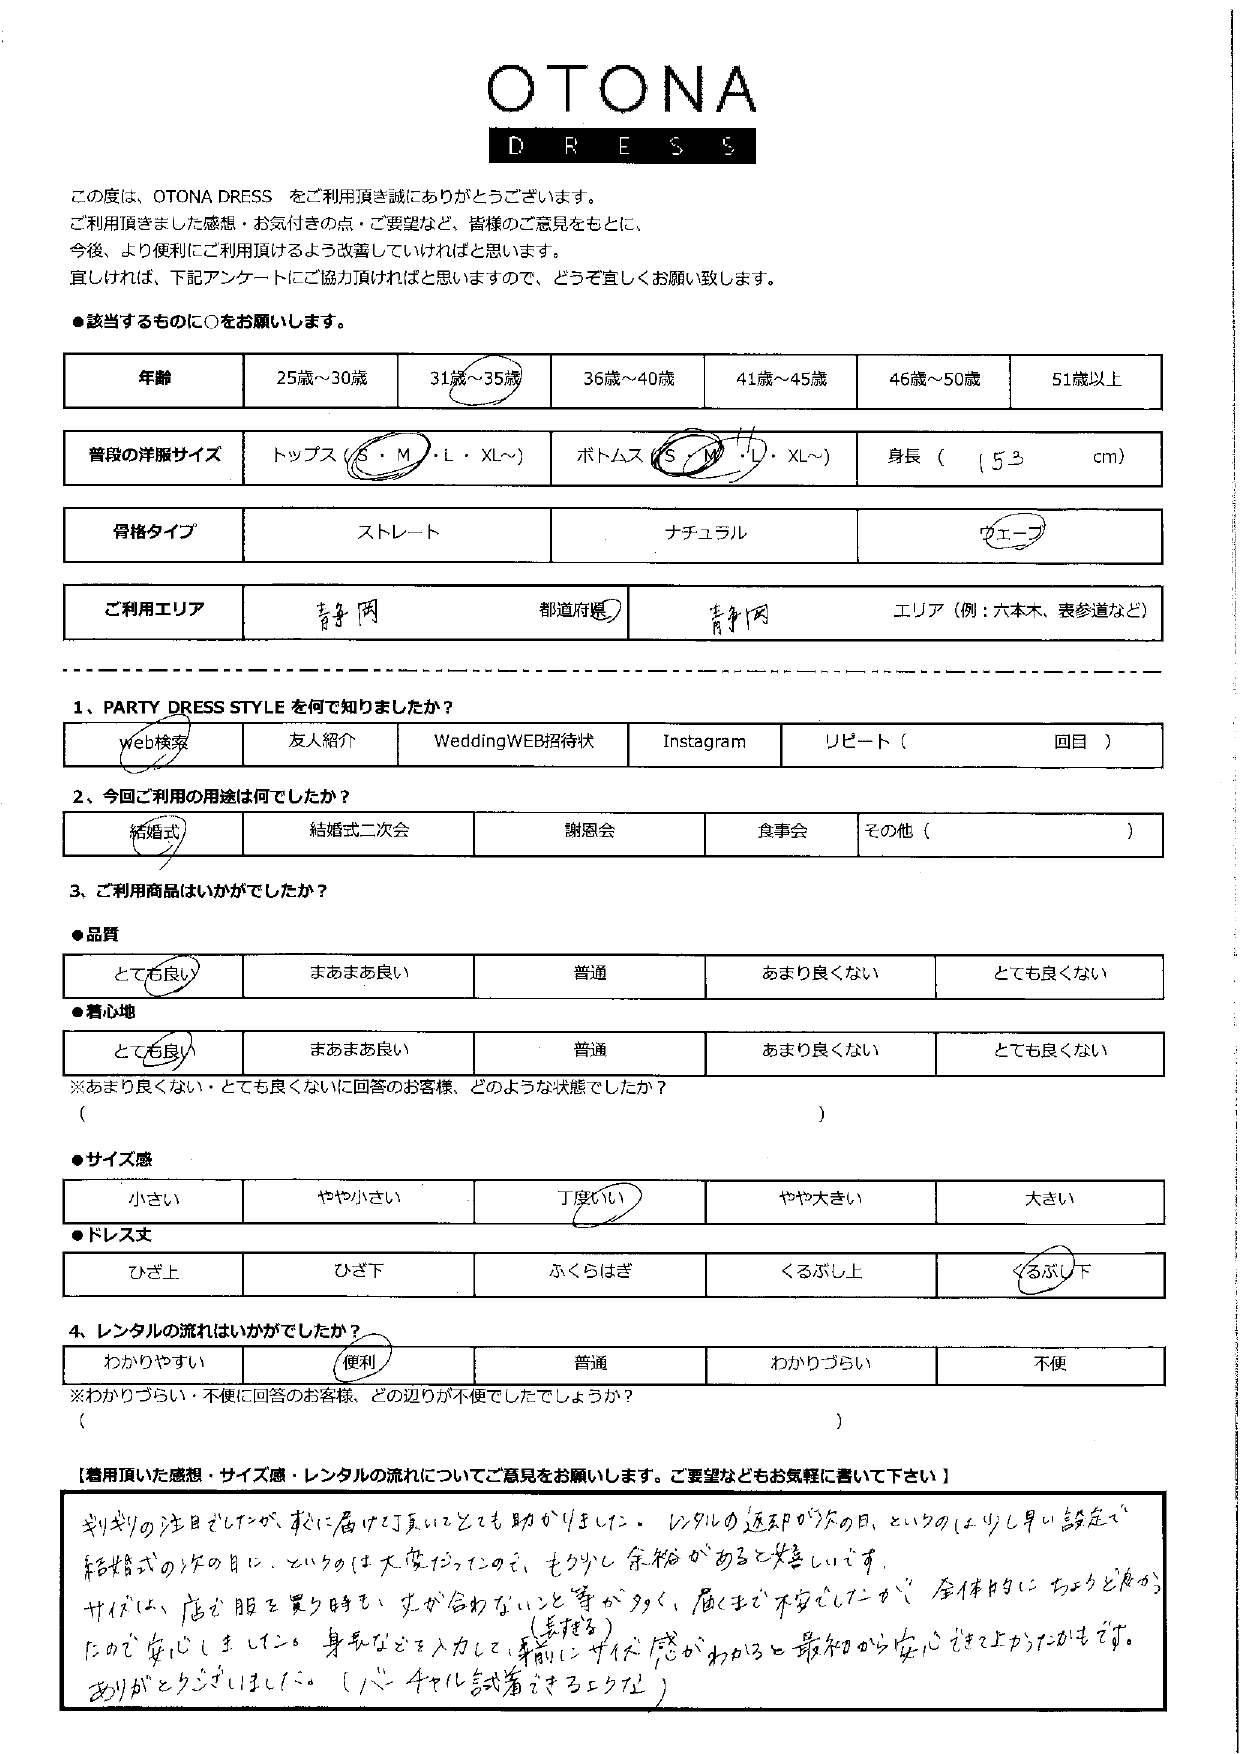 OTONA
DRESS
この度は、OTONA DRESS　をご利用頂き誠にありがとうございます。
ご利用頂きました感想・お気付きの点・ご要望など、皆様のご意見をもとに、
今後、より便利にご利用頂けるよう改善していければと思います。
宜しければ、下記アンケートにご協力頂ければと思いますので、どうぞ宜しくお願い致します。
●該当するものに○をお願いします。
年齢 25歳～30歳 31歳～35歳 36歳～40歳 41歳～45歳 46歳～50歳 51歳以上
普段の洋服サイズ トップス（S ・ M ・ L ・ XL～) ボトムス（S ・ M ・ L ・ XL～) 身長 （ 153 cm）
骨格タイプ ストレート ナチュラル ウェーブ
ご利用エリア 静岡 都道府県 静岡 エリア（例：六本木、表参道など）
1、PARTY DRESS STYLE を何で知りましたか？
web検索 友人紹介 WeddingWEB招待状 Instagram リピート（ 回目 ）
2、今回ご利用の用途は何でしたか？
結婚式 結婚式二次会 謝恩会 食事会 その他（ ）
3、ご利用商品はいかがでしたか？
●品質
とても良い まあまあ良い 普通 あまり良くない とても良くない
●着心地
とても良い まあまあ良い 普通 あまり良くない とても良くない
※あまり良くない・とても良くないに回答のお客様、どのような状態でしたか？
（ ）
●サイズ感
小さい やや小さい 丁度いい やや大きい 大きい
●ドレス丈
ひざ上 ひざ下 ふくらはぎ くるぶし上 くるぶし下
4、レンタルの流れはいかがでしたか？
わかりやすい 便利 普通 わかりづらい 不便
※わかりづらい・不便に回答のお客様、どの辺りが不便でしたでしょうか？
（ ）
【着用頂いた感想・サイズ感・レンタルの流れについてご意見をお願いします。ご要望などもお気軽に書いて下さい】
ギリギリの注目でしたが、すぐに届けて頂いてとても助かりました。 レンタルの返却が次の日、というのは少し早い設定で
結婚式の次の日に、というのは大変だったので、もう少し余裕があると嬉しいです。
サイズは、店で服を買う時も、丈が合わないこと等が多く、届くまで不安でしたが 全体的にちょうど良かっ
(長すぎる)
たので安心しました。身長などを入力して、事前にサイズ感がわかると最初から安心できてよかったかもです。
ありがとうございました。（バーチャル試着できるような）